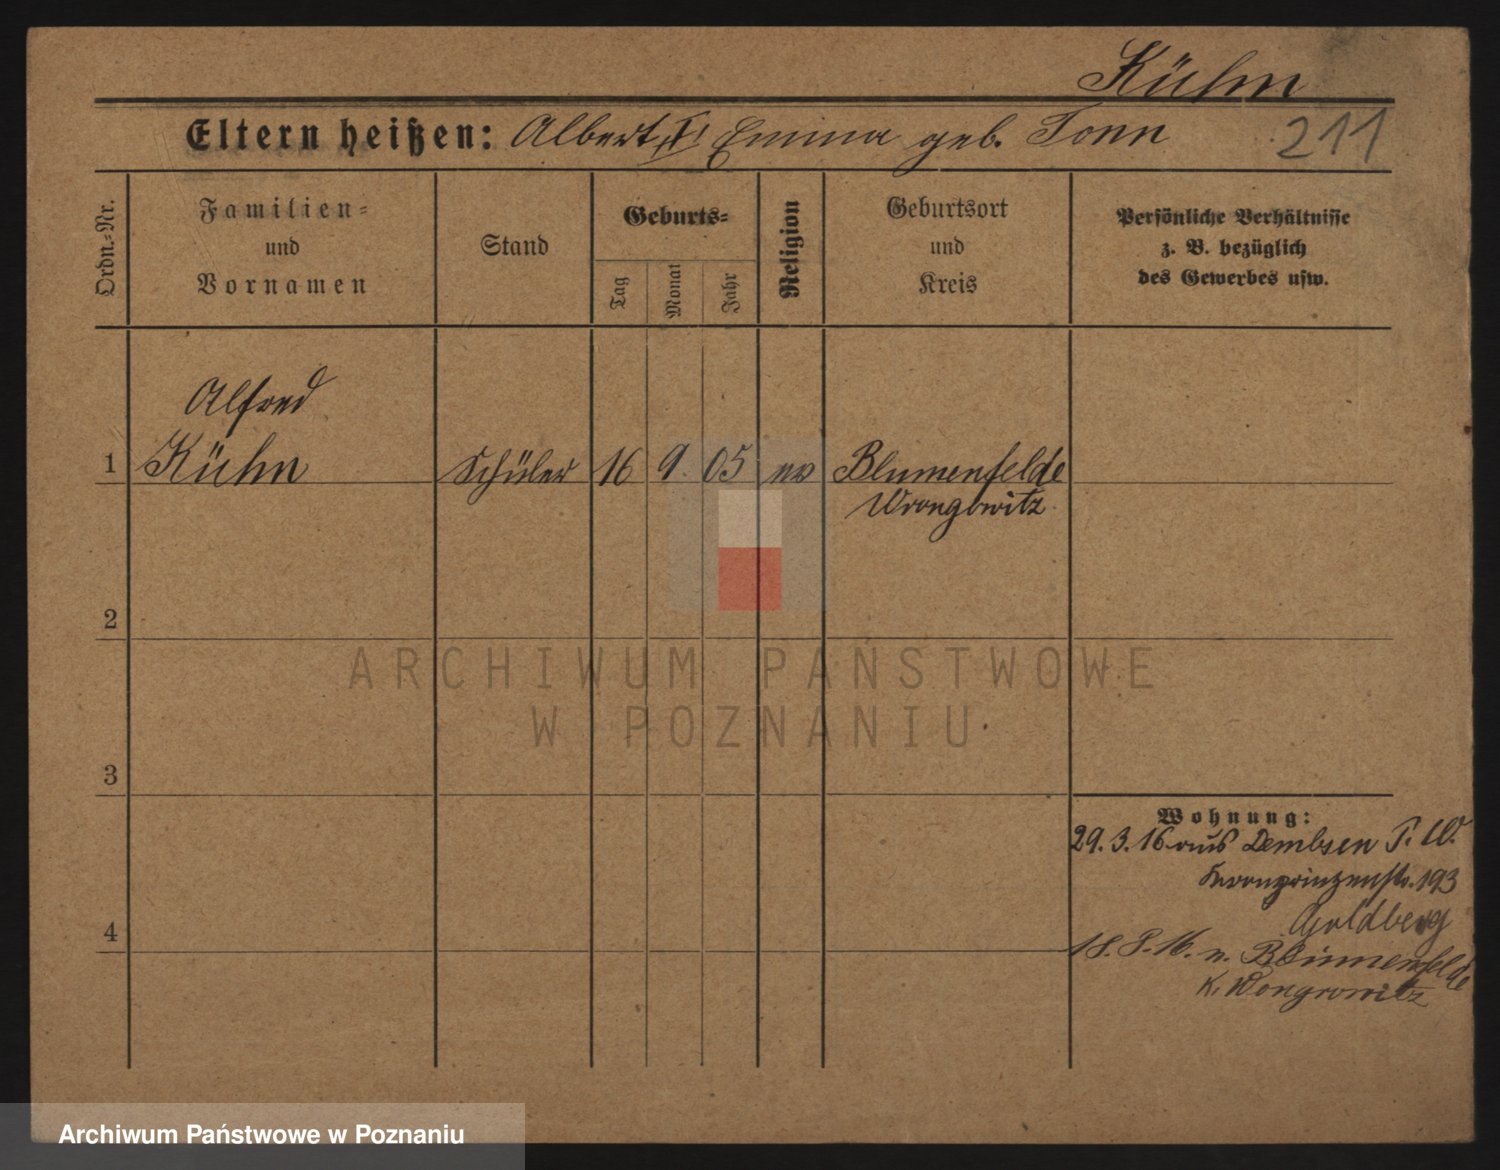 Kühn
Eltern heißen: Albert, Emma geb. Tonn 211
Ordn.-Nr.
Familien-
und
Vornamen
Stand
Geburts-
Tag
Monat
Jahr
Religion
Geburtsort
und
Kreis
Persönliche Verhältnisse
z. B. bezüglich
des Gewerbes usw.
Alfred
1 Kühn Schüler 16 9. 05 ev Blumenfelde
Wrongowitz
2
3
4
Wohnung:
29.3.16 aus Dembsen
Kronprinzenstr. 193
Goldberg
18.8.16. n. Blumenfelde
K. Wongrowitz
ARCHIWUM PAŃSTWOWE
W POZNANIU
Archiwum Państwowe w Poznaniu